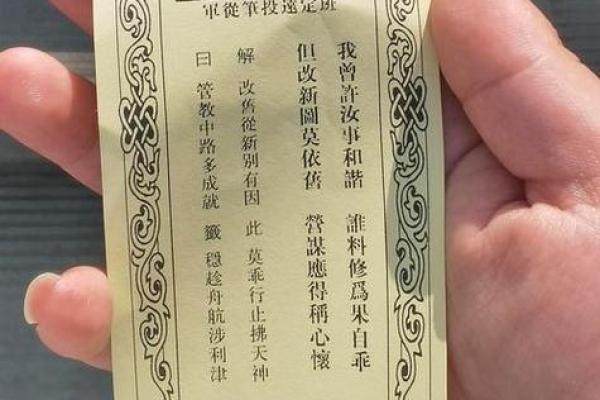 班定遠投筆從軍
我曾許汝事和諧 誰料修爲果自乖
但改新圖莫依舊 營謀應得稱心懷
解 改舊從新別有因 此 莫乖行止拂天神
曰 管教中路多成就 籤 穩趁舟航涉利津